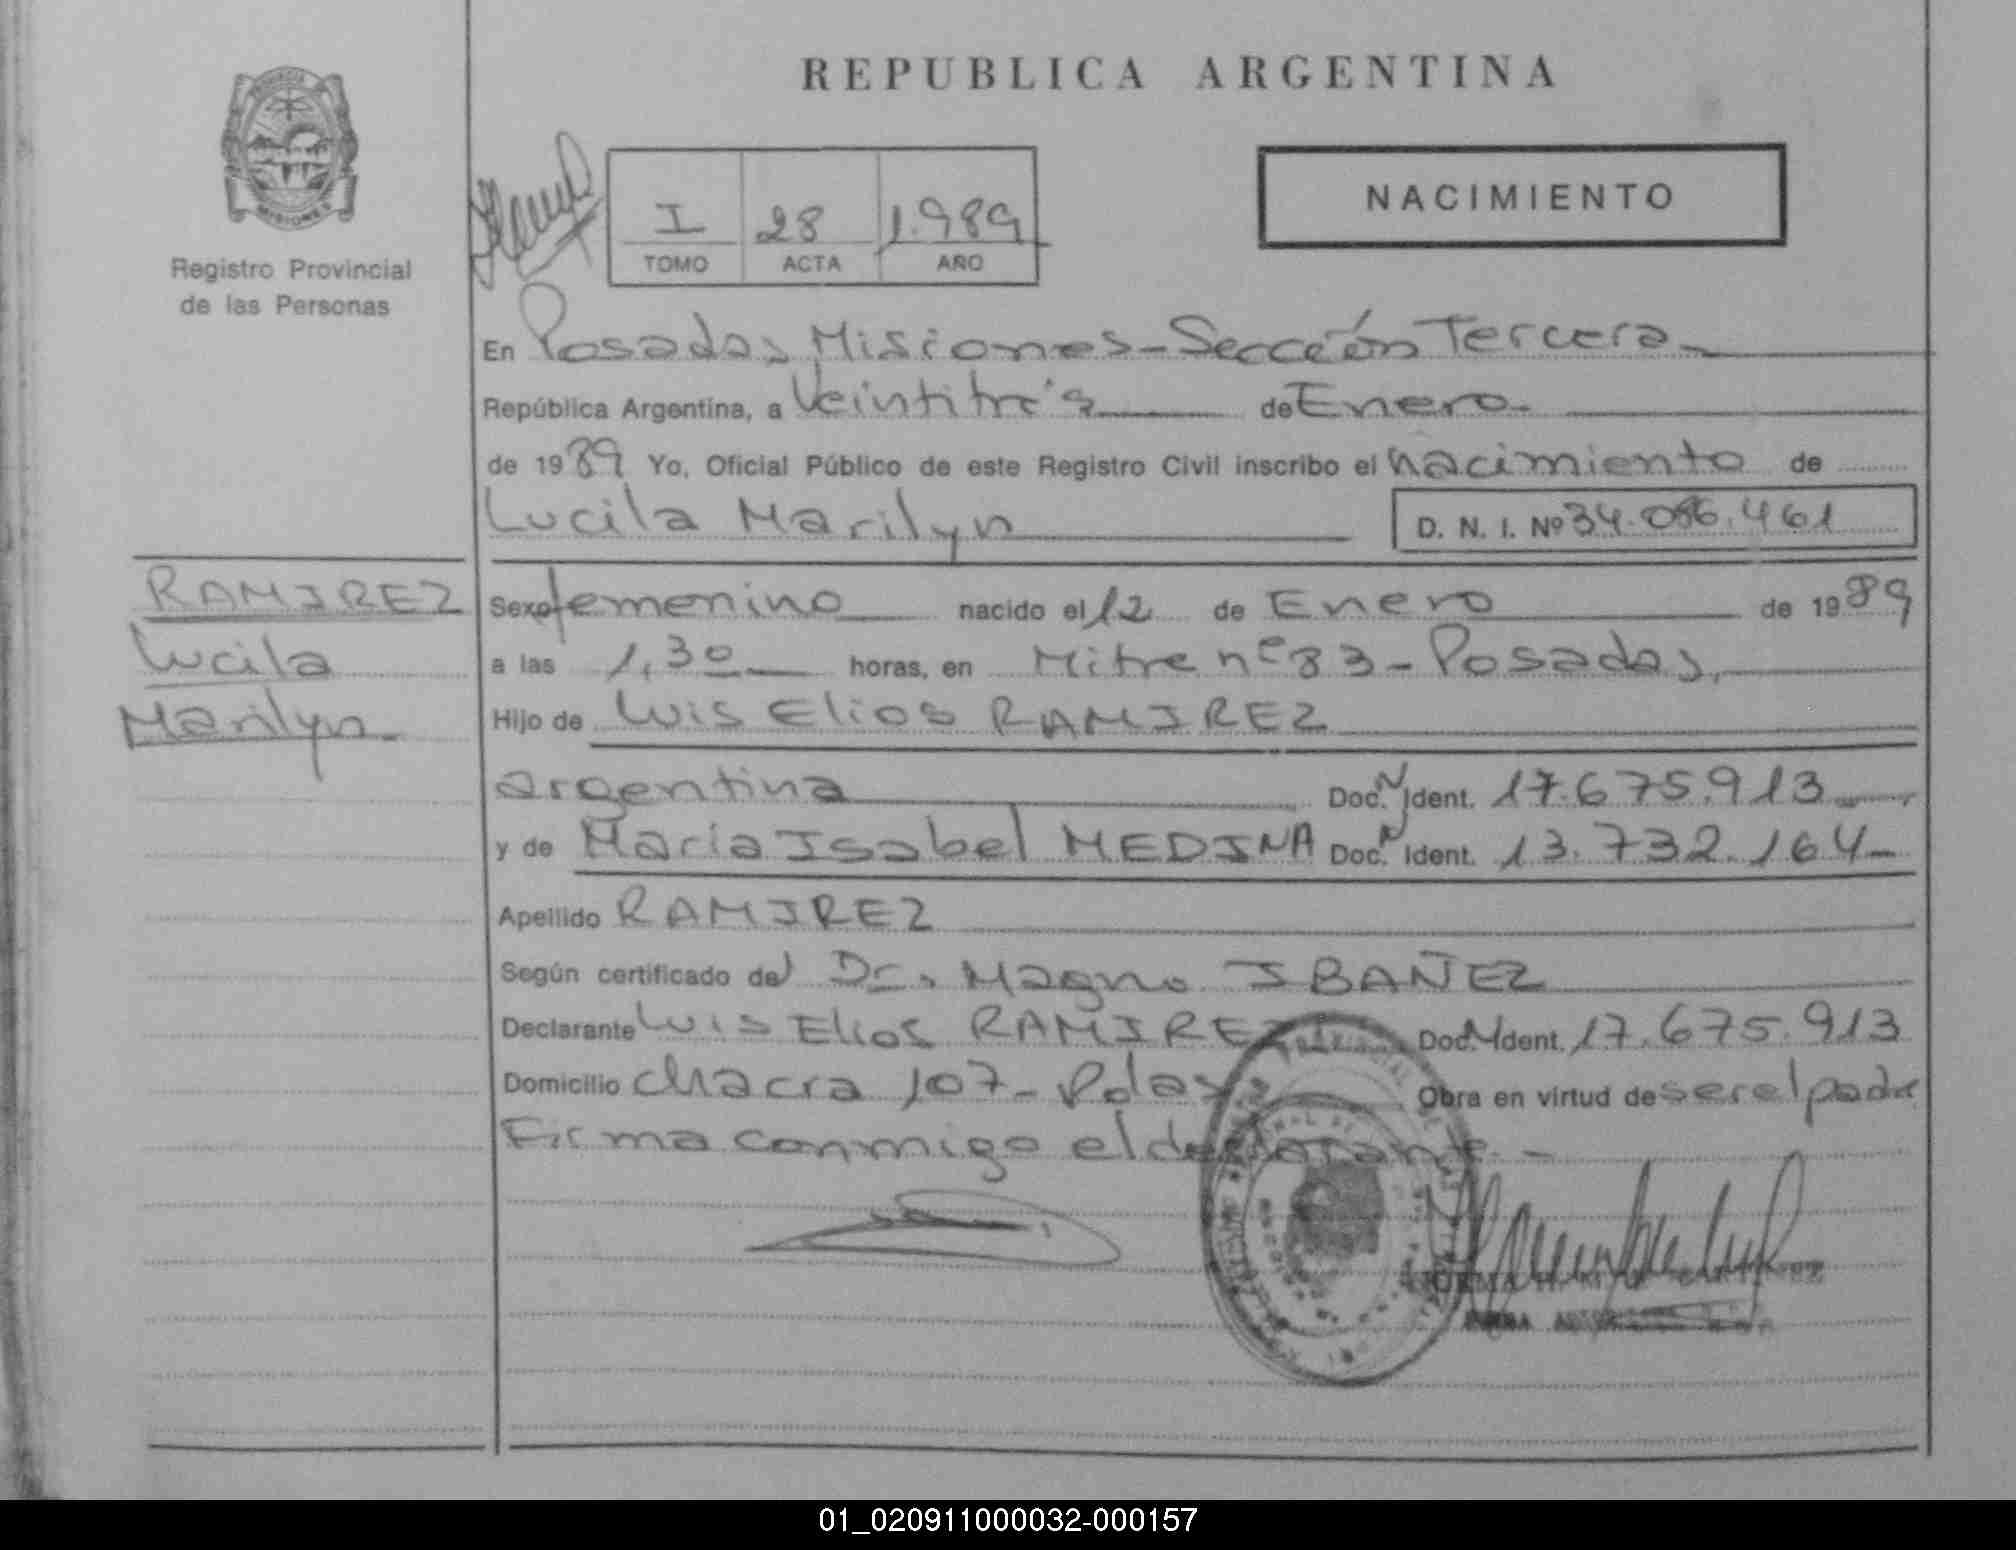 REPUBLICA ARGENTINA
MISIONES
Registro Provincial
de las Personas
I 28 1.989
TOMO ACTA AÑO
NACIMIENTO
En Posadas, Misiones - Sección Tercera
República Argentina, a Veintitrés de Enero
de 1989 Yo, Oficial Público de este Registro Civil inscribo el nacimiento de
Lucila Marilyn D. N. I. Nº 34.086.461
RAMIREZ
Lucila
Marilyn
Sexo femenino nacido el 12 de Enero de 1989
a las 1,30 horas, en Mitre nº 83 - Posadas,
Hijo de Luis Elios RAMIREZ
argentina Doc. N Ident. 17.675.913
y de Maria Isabel MEDINA Doc. N Ident. 13.732.164
Apellido RAMIREZ
Según certificado del Dr. Magno IBAÑEZ
Declarante Luis Elios RAMIREZ Doc. N Ident. 17.675.913
Domicilio Chacra 107 - Pdas Obra en virtud de ser el padre
Firma conmigo el declarante. -
01_020911000032-000157